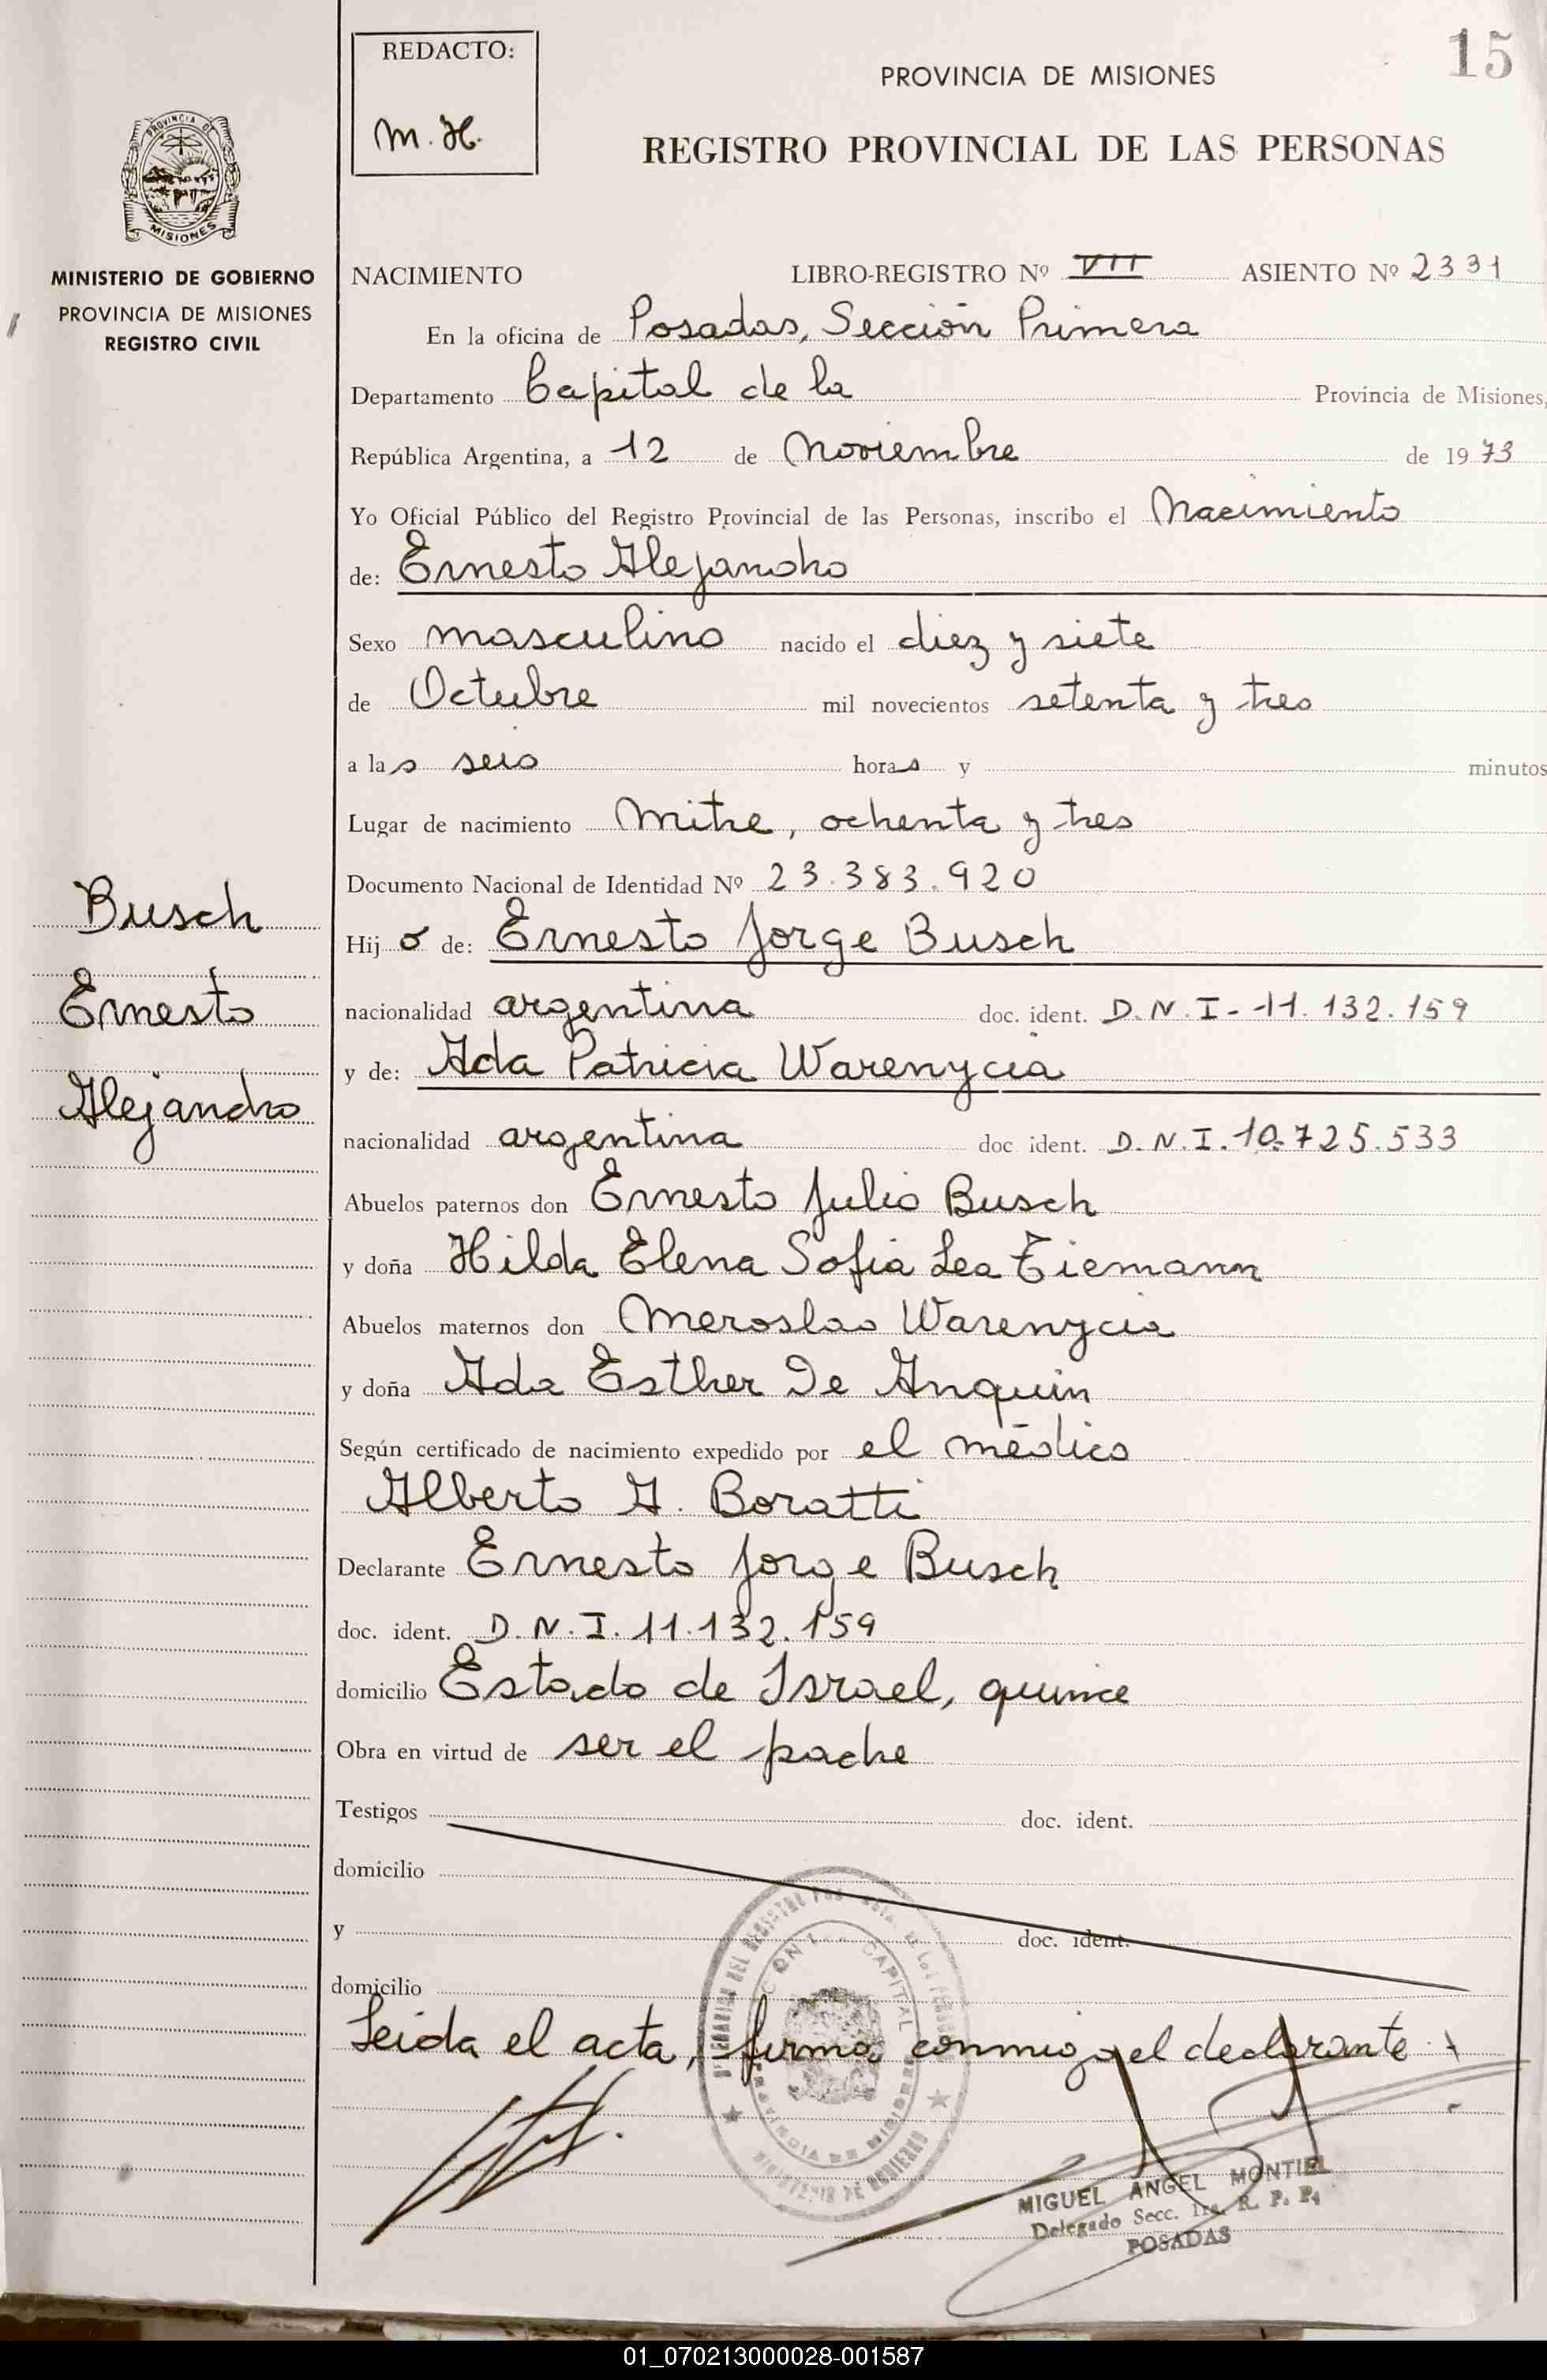 REDACTO:
M. H.
15
PROVINCIA DE MISIONES
REGISTRO PROVINCIAL DE LAS PERSONAS
PROVINCIA DE
MISIONES
MINISTERIO DE GOBIERNO
PROVINCIA DE MISIONES
REGISTRO CIVIL
NACIMIENTO LIBRO-REGISTRO Nº VII ASIENTO Nº 2331
En la oficina de Posadas, Sección Primera
Departamento Capital de la Provincia de Misiones,
República Argentina, a 12 de Noviembre de 1973
Yo Oficial Público del Registro Provincial de las Personas, inscribo el Nacimiento
de: Ernesto Alejandro
Sexo masculino nacido el diez y siete
de Octubre mil novecientos setenta y tres
a las seis horas y minutos
Lugar de nacimiento Mitre, ochenta y tres
Documento Nacional de Identidad Nº 23.383.920
Busch
Ernesto
Alejandro
Hijo de: Ernesto Jorge Busch
nacionalidad argentina doc. ident. D.N.I-11.132.159
y de: Ada Patricia Warenycia
nacionalidad argentina doc ident. D.N.I.10.725.533
Abuelos paternos don Ernesto Julio Busch
y doña Hilda Elena Sofia Lea Tiemann
Abuelos maternos don Meroslao Warenycia
y doña Ada Esther De Anquin
Según certificado de nacimiento expedido por el médico
Alberto A. Boratti
Declarante Ernesto Jorge Busch
doc. ident. D.N.I.11.132.159
domicilio Estado de Israel, quince
Obra en virtud de ser el padre
Testigos doc. ident.
domicilio
y doc. ident.
domicilio
Leida el acta, firma conmigo el declarante
CAPITAL
PROVINCIA DE MISIONES
MINISTERIO DE GOBIERNO
MIGUEL ANGEL MONTIEL
Delegado Secc. 1ra. R. P. P.
POSADAS
01_070213000028-001587